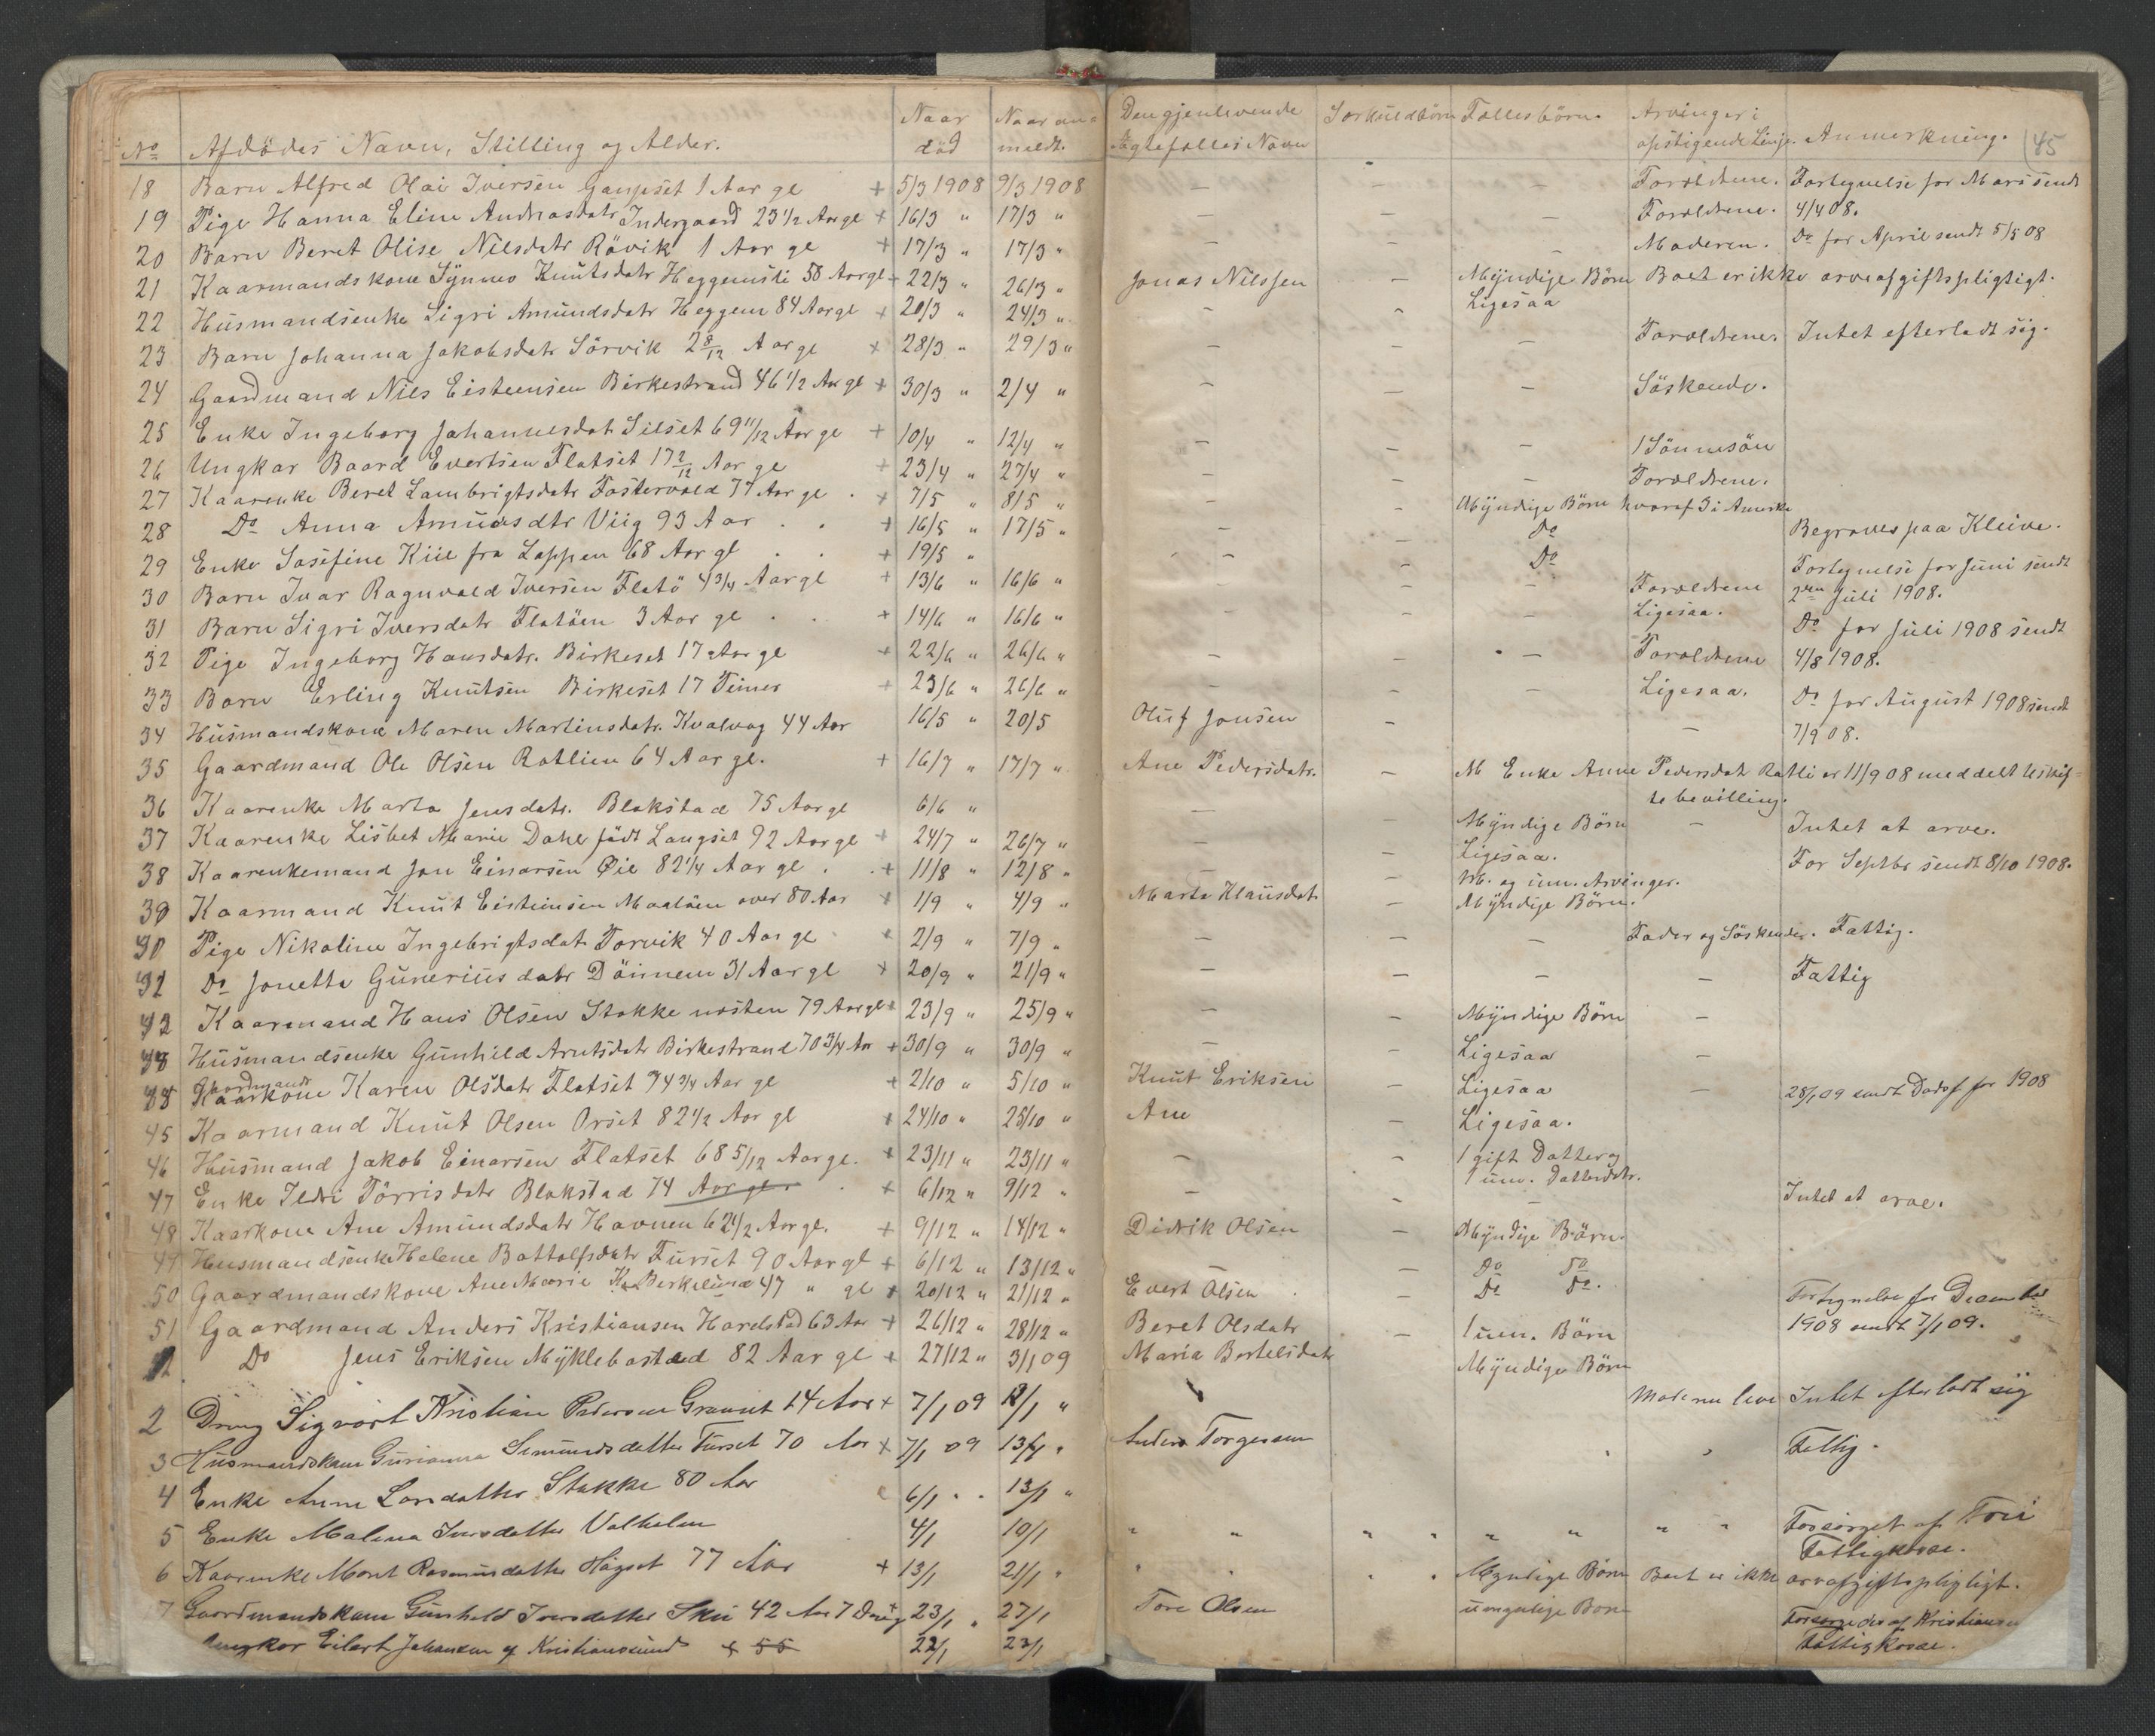 No Afdödes Navn, Stilling og Alder. Naar död Naar anmeldt. Den gjenlevende Ægtefælles Navn Særkuldbörn Fællesbörn. Arvinger i opstigende Linje. Anmerkning. 45
18 Barn Alfred Olai Iversen Gaupset 1 Aar gl + 5/3 1908 9/3 1908 – – – Forældrene. Fortegnelse for Mars sendt
19 Pige Hanna Eline Andreasdatr Indergaard 23 1/2 Aar gl + 16/3 " 17/3 " – – – Forældrene. 4/4 08.
20 Barn Beret Olise Nilsdatr Rövik 1 Aar gl + 17/3 " 17/3 " – – – Moderen. Do for April sendt 5/5 08
21 Kaarmandskone Synnøv Knutsdatr Heggemsli 58 Aar gl + 22/3 " 26/3 " Jonas Nilssen – Myndige Börn Boet er ikke arveafgiftspligtigt.
22 Husmandsenke Sigri Amundsdatr Heggem 84 Aar gl + 20/3 " 24/3 " – – Ligesaa
23 Barn Johanna Jakobsdatr Sörvik 2 8/12 Aar gl + 28/3 " 29/3 " – – – Forældrene. Intet efterladt sig.
24 Gaardmand Nils Eisteensen Birkestrand 46 1/2 Aar gl + 30/3 " 2/4 " – – – Söskende.
25 Enke Ingeborg Johannesdat Silset 69 11/12 Aar gl + 10/4 " 12/4 " – – – 1 Sönnesön
26 Ungkar Baard Evertsen Flatset 17 2/12 Aar gl + 23/4 " 27/4 " – – – Forældrene.
27 Kaarenke Beret Lambrigtsdatr Fostervold 77 Aar gl . + 7/5 " 8/5 " – – Myndige Börn hvoraf 3 i Amerika
28 Do Anna Amundsdtr Viig 93 Aar . . + 16/5 " 17/5 " – – Do Begraves paa Kleive.
29 Enke Josefine Kiil fra Loppen 68 Aar gl . . + 19/5 " – – Do
30 Barn Ivar Ragnvald Iversen Flatö 4 3/4 Aar gl + 13/6 " 16/6 " – – – Forældrene Fortegnelse for Juni sendt
31 Barn Sigri Iversdatr Flatöen 3 Aar gl . . + 14/6 " 16/6 " – – – Ligesaa. 2den Juli 1908.
32 Pige Ingeborg Hansdatr. Birkeset 17 Aar gl + 22/6 " 26/6 " – – – Forældrene Do for Juli 1908 sendt 4/8 1908.
33 Barn Erling Knutsen Birkeset 17 Timer + 23/6 " 26/6 " – – – Ligesaa. Do for August 1908 sendt
34 Husmandskone Maren Martinsdatr. Kvalvag 44 Aar 16/5 " 20/5 Oluf Jonsen – – 7/9 08.
35 Gaardmand Ole Olsen Rotlien 64 Aar gl. + 16/7 " 17/7 " Ane Pedersdatr. – M Enke Anne Pedersdat Rotli er 11/9 08 meddelt Uskif=
te bevilling.
36 Kaarenke Marta Jensdatr. Blakstad 75 Aar gl 6/6 " – – Myndige Börn – Intet at arve.
37 Kaarenke Lisbet Marie Dahl födt Langset 92 Aar gl + 24/7 " 26/7 " – – Ligesaa.
38 Kaarenkemand Jon Einarsen Øie 82 1/4 Aar gl . . + 11/8 " 12/8 " – – M. og um. Arvinger. For Septbr sendt 8/10 1908.
39 Kaarmand Knut Eisteinsen Maaløen over 80 Aar + 1/9 " 4/9 " Marta Klausdat – Myndige Börn.
40 Pige Nikoline Ingebrigtsdat Torvik 40 Aar gl + 2/9 " 7/9 " – – – Fader og Söskender. Fattig.
Do Jonetta Guneriusdatr Döinnem 31 Aar gl + 20/9 " 21/9 " – – – – Fattig
42 Kaarmand Hans Olsen Stokke nosten 79 Aar gl + 23/9 " 25/9 " – – Myndige Börn –
43 Husmandsenke Gunhild Arntsdatr Birkestrand 70 3/4 Aar + 30/9 " 30/9 " – – Ligesaa –
44 Gaardmands Kaarkone Karen Olsdatr Flatset 74 3/4 Aar gl + 2/10 " 5/10 " Knut Eriksen – Ligesaa – 28/1 09 sendt Dødsf for 1908
45 Kaarmand Knut Olsen Orset 82 1/2 Aar gl + 24/10 " 25/10 " Ane – Ligesaa.
46 Husmand Jakob Einarsen Flatset 68 5/12 Aar gl. + 23/11 " 23/11 " – – 1 gift Datter og
1 um. Datterdatr.
47 Enke Ildri Törrisdatr Blakstad 74 Aar gl. . + 6/12 " 9/12 " – – – Intet at arve.
48 Kaarkone Ane Amundsdatr Havnen 62 1/2 Aar gl. + 9/12 " 14/12 " Didrik Olsen – Myndige Börn.
49 Husmandsenke Helene Bottolfsdatr Furset 90 Aar gl + 6/12 " 13/12 " – Do Do
50 Gaardmandskone Ane Marie Berkelund 47 " gl + 20/12 " 21/12 " Evert Olsen – Do Do. Fortegnelse for December
51 Gaardmand Anders Kristiansen Harelstad 63 Aar + 26/12 " 28/12 " Beret Olsdatr – 1 um. Börn 1908 sendt 7/1 09.
1 Do Jens Eriksen Myklebostad 82 Aar gl + 27/12 " 3/1 09 Maria Bertelsdatr Myndige Börn
2 Dreng Sigvart Kristian Pedersen Granset 14 Aar + 7/1 09 12/1 " Moderen leve Intet efterladt sig
3 Husmandskone Gurianna Semundsdatter Furset 70 Aar + 7/1 09 13/1 " Anders Torgersen Fattig.
4 Enke Anne Larsdatter Stokke 80 Aar 6/1 . . 13/1 "
5 Enke Malena Iversdatter Valholm 4/1 10/1 " " " " " " " " Forsörget af Frei
Fattigkasse.
6 Kaarenke Marit Rasmusdatter Högset 77 Aar + 13/1 21/1 " " " " " Myndige Börn Boet er ikke arveafgiftspligtigt.
7 Gaardmandskone Gunhild Iversdatter Skei 42 Aar 7 + 23/1 " 27/1 Tore Olsen umyndige Born Forsørgedes af Kristiansu
Ungkar Eilert Johansen af Kristiansund + 55 22/1 23/1 Fattigkasse.